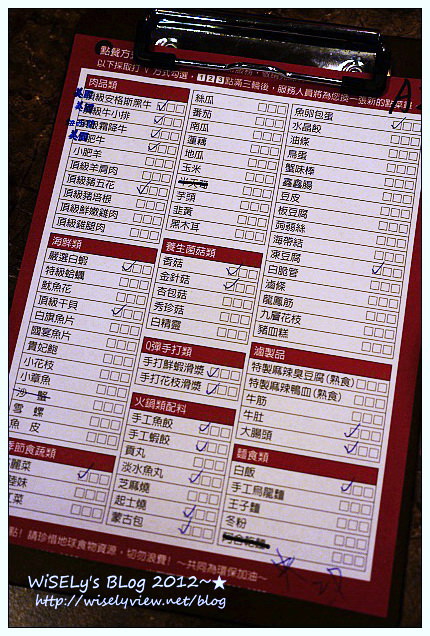 點餐方式
以下採取打 V 方式勾選，123點滿三輪後，服務人員將為您換一張新的點菜單
肉品類
美國
頂級安格斯黑牛
美國
級牛小排
級霜降牛
美國
肥牛
小肥羊
頂級羊肩肉
頂級豬五花
頂級豬培根
頂級鮮嫩雞肉
頂級雞腿肉
海鮮類
嚴選白蝦
特級蛤蠣
魷魚花
頂級干貝
白旗魚片
國宴魚片
貴妃鮑
小花枝
小章魚
沙 蟹
雪 螺
魚 皮
季節食蔬類
麗菜
陸妹
菜
絲瓜
番茄
南瓜
蓮藕
地瓜
玉米
芋頭
韭黃
黑木耳
養生菌菇類
香菇
金針菇
杏包菇
秀珍菇
白精靈
Q彈手打類
手打鮮蝦滑漿
手打花枝滑漿
火鍋類配料
手工魚餃
手工蝦餃
貢丸
淡水魚丸
芝麻燒
起士燒
蒙古包
魚卵包蛋
水晶餃
油條
鳥蛋
蟹味棒
鑫鑫腸
豆皮
板豆腐
蒟蒻絲
海帶結
凍豆腐
白脆管
滷條
龍鳳筋
九層花枝
豬血糕
滷製品
特製麻辣臭豆腐(熟食)
特製麻辣鴨血(熟食)
牛筋
牛肚
大腸頭
麵食類
白飯
手工烏龍麵
王子麵
冬粉
點！請珍惜地球食物資源，切勿浪費！～共同為環保加油～
WiSELy's BLOG 2012~★
http://wiselyview.net/blog